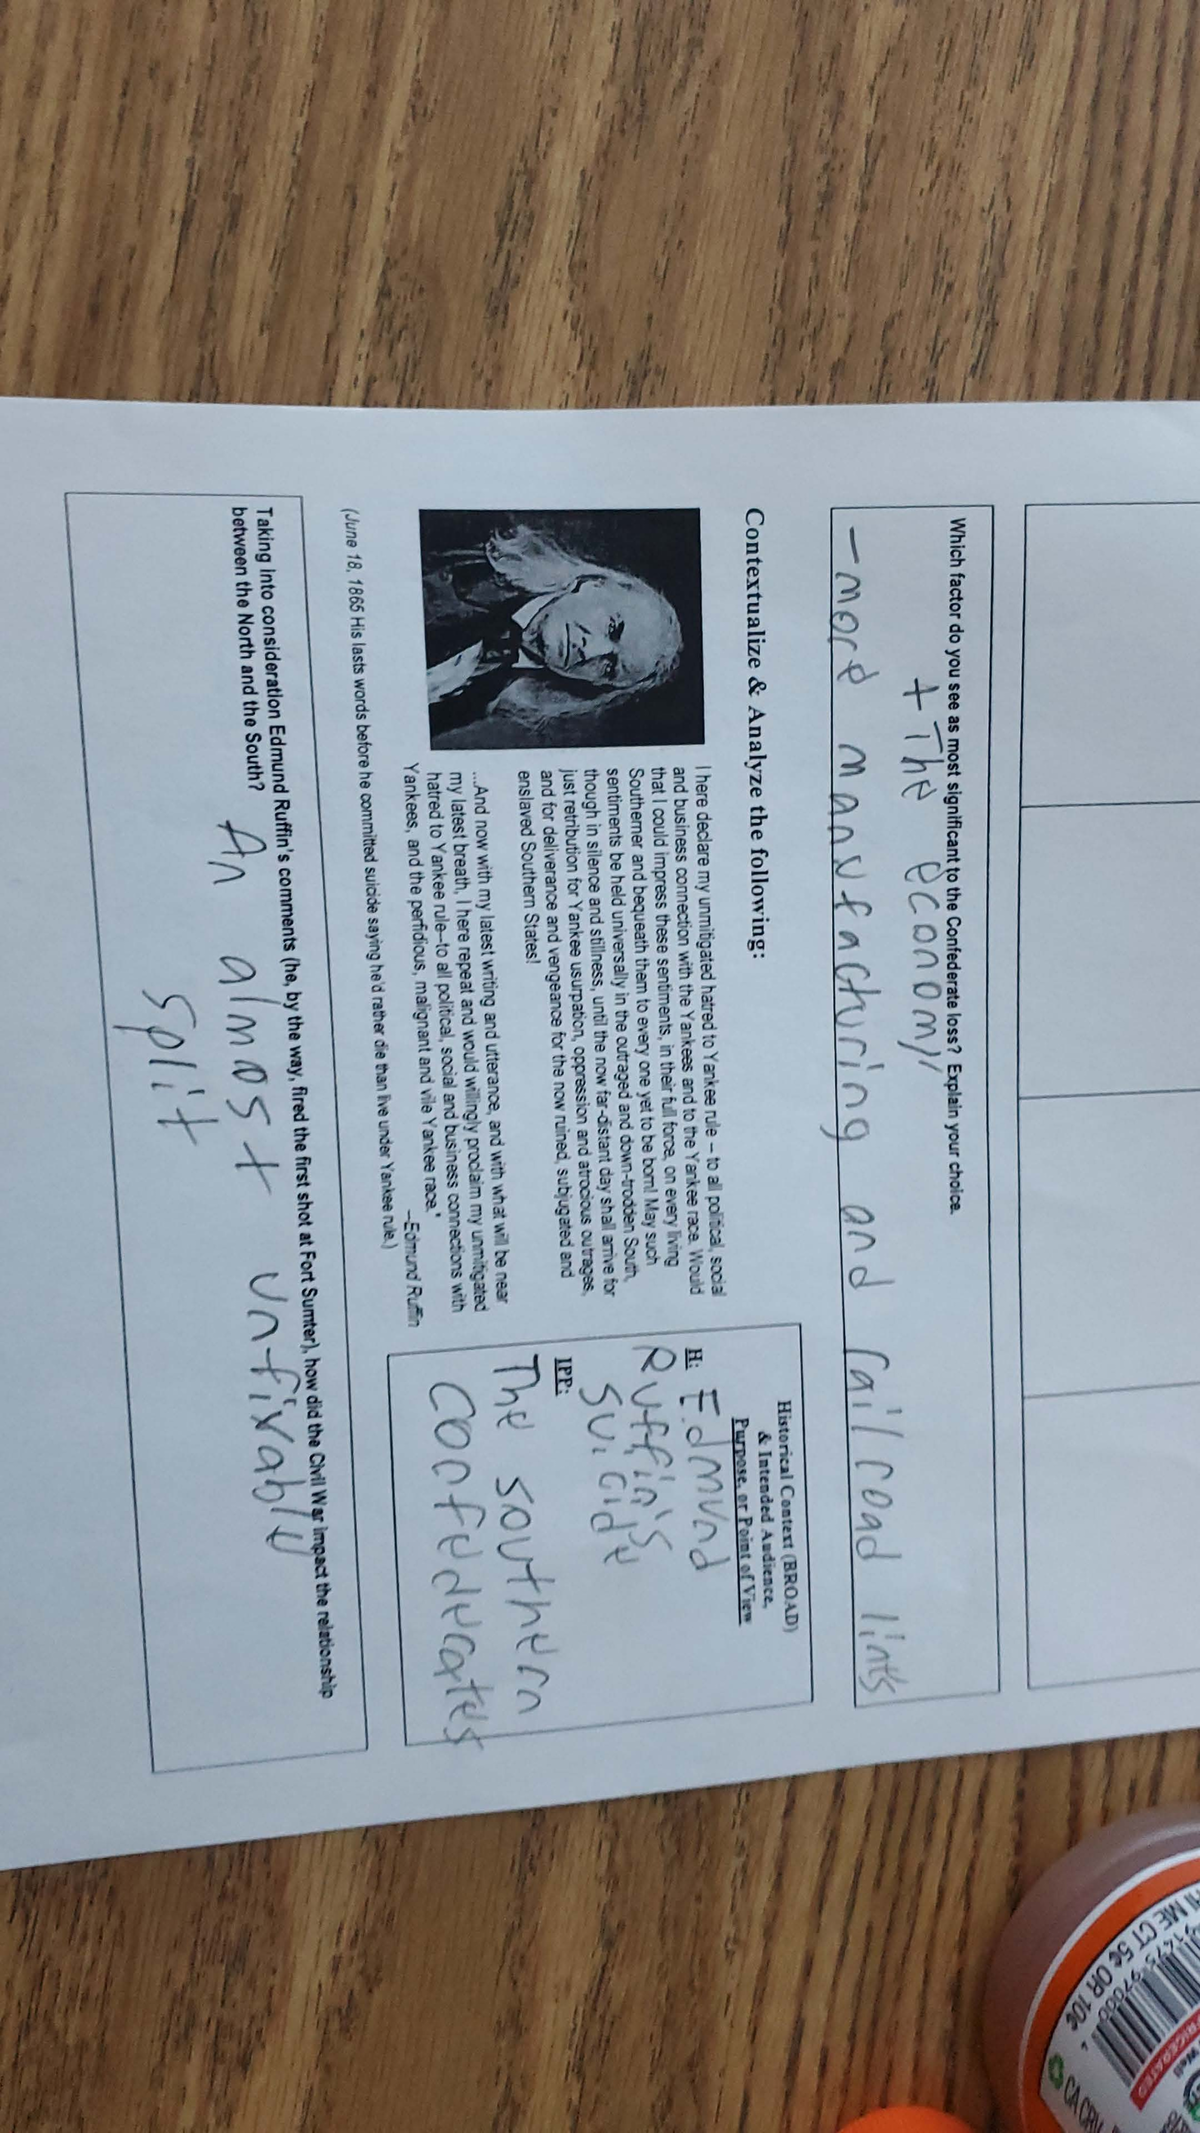 Which factor do you see as most significant to the Confederate loss? Explain your choice.
+ The economy
- more manufacturing and railroad lines
Contextualize & Analyze the following:
I here declare my unmitigated hatred to Yankee rule – to all political, social
and business connection with the Yankees and to the Yankee race. Would
that I could impress these sentiments, in their full force, on every living
Southerner and bequeath them to every one yet to be born! May such
sentiments be held universally in the outraged and down-trodden South,
though in silence and stillness, until the now far-distant day shall arrive for
just retribution for Yankee usurpation, oppression and atrocious outrages,
and for deliverance and vengeance for the now ruined, subjugated and
enslaved Southern States!
...And now with my latest writing and utterance, and with what will be near
my latest breath, I here repeat and would willingly proclaim my unmitigated
hatred to Yankee rule--to all political, social and business connections with
Yankees, and the perfidious, malignant and vile Yankee race."
--Edmund Ruffin
(June 18, 1865 His lasts words before he committed suicide saying he'd rather die than live under Yankee rule.)
Historical Context (BROAD)
& Intended Audience,
Purpose, or Point of View
H: Edmund
Ruffin's
suicide
IPP:
The southern
confederates
Taking into consideration Edmund Ruffin's comments (he, by the way, fired the first shot at Fort Sumter), how did the Civil War impact the relationship
between the North and the South?
An almost unfixable
split
ME CT 5¢ OR 10¢
CA CRV